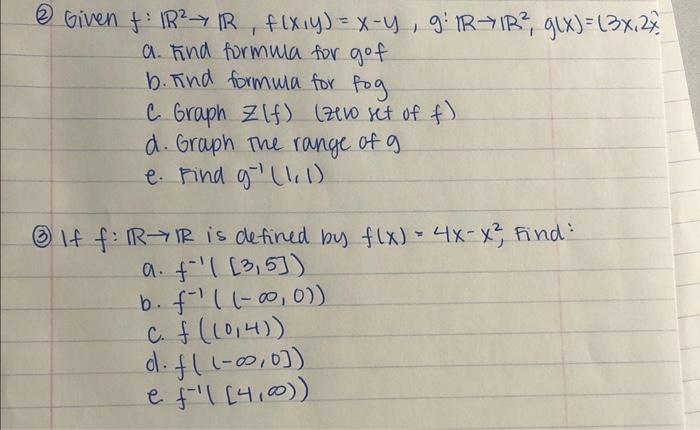 ② Given f: ℝ²→ℝ, f(x,y) = x-y, g: ℝ→ℝ², g(x)=(3x,2x)
a. Find formula for g∘f
b. Find formula for f∘g
c. Graph Z(f) (zero set of f)
d. Graph The range of g
e. Find g⁻¹(1,1)
③ If f: ℝ→ℝ is defined by f(x) = 4x-x², Find:
a. f⁻¹([3,5])
b. f⁻¹((-∞,0))
c. f((0,4))
d. f((-∞,0])
e f⁻¹([4,∞))